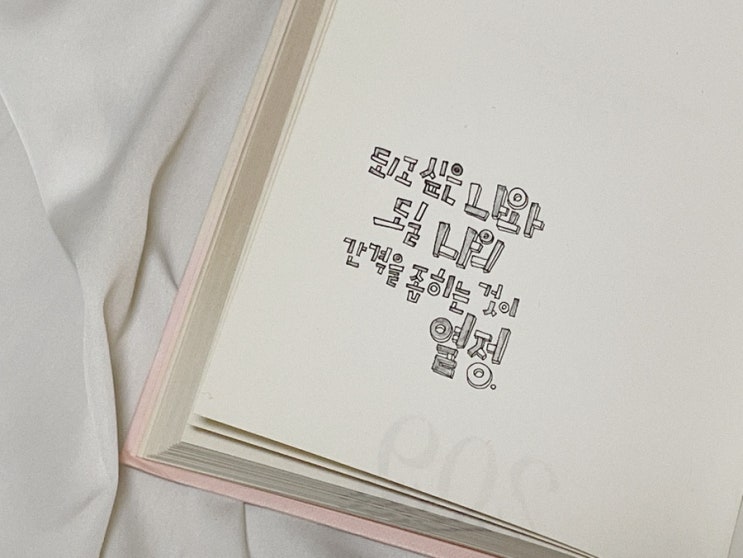 되고 싶은 나와
될 나의
간격을 좁히는 것이
열정.